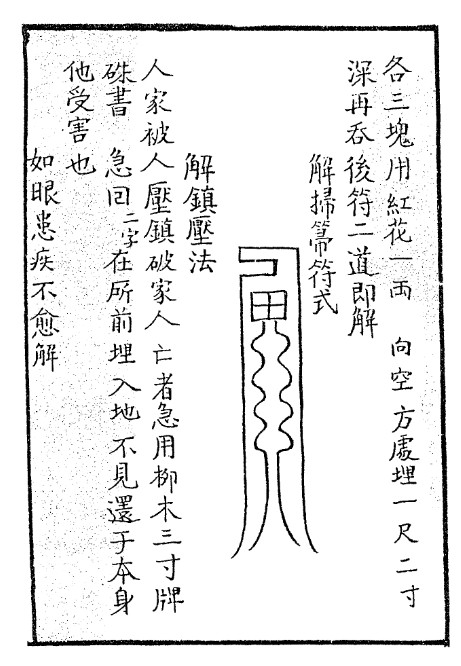 各三塊用紅花一兩　向空方處埋一尺二寸
深再吞後符二道即解
解掃箒符式
田
解鎮壓法
人家被人壓鎮破家人亡者急用柳木三寸牌
硃書　急回二字在所前埋入地不見還于本身
他受害也
如眼患疾不愈解